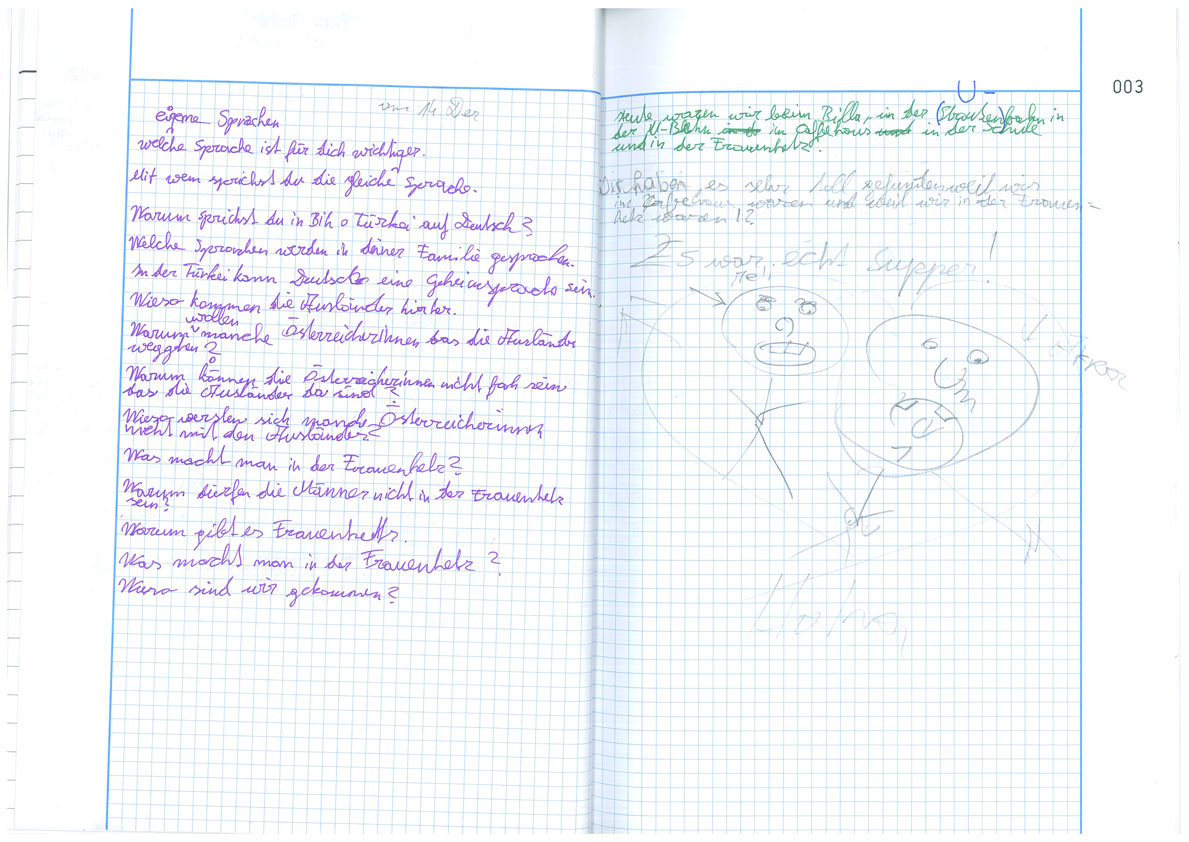 vom 14. Dez
eigene Sprachen
welche Sprache ist für dich wichtiger.
Mit wem sprichst du die gleiche Sprache.
Warum sprichst du in Bih o Türkei auf Deutsch?
Welche Sprachen werden in deiner Familie gesprochen.
In der Türkei kann Deutsch eine Geheimsprache sein.
Wieso kommen die Ausländer hierher.
wollen
Warum manche Österreicherinnen das die Ausländer
weggehen?
Warum können die Österreicherinnen nicht froh sein
das die Ausländer da sind?
Wieso sich manche Österreicherinnen
nicht mit den Ausländer?
Was macht man in der Frauenhetz?
Warum dürfen die Männer nicht in der Frauenhetz
sein?
Warum gibt es Frauenhetz.
Was macht man in der Frauenhetz?
Wieso sind wir gekommen?
003
U-
Heute waren wir beim Billa, in der (Strassen)bahn in
der U-Bahn im Caffehaus in der Schule
und in der Frauenhetz.
Wir haben es sehr toll gefunden weil wir
im Kaffehaus waren und weil wir in der Frauen=
hetz waren!?
Es war echt supper!